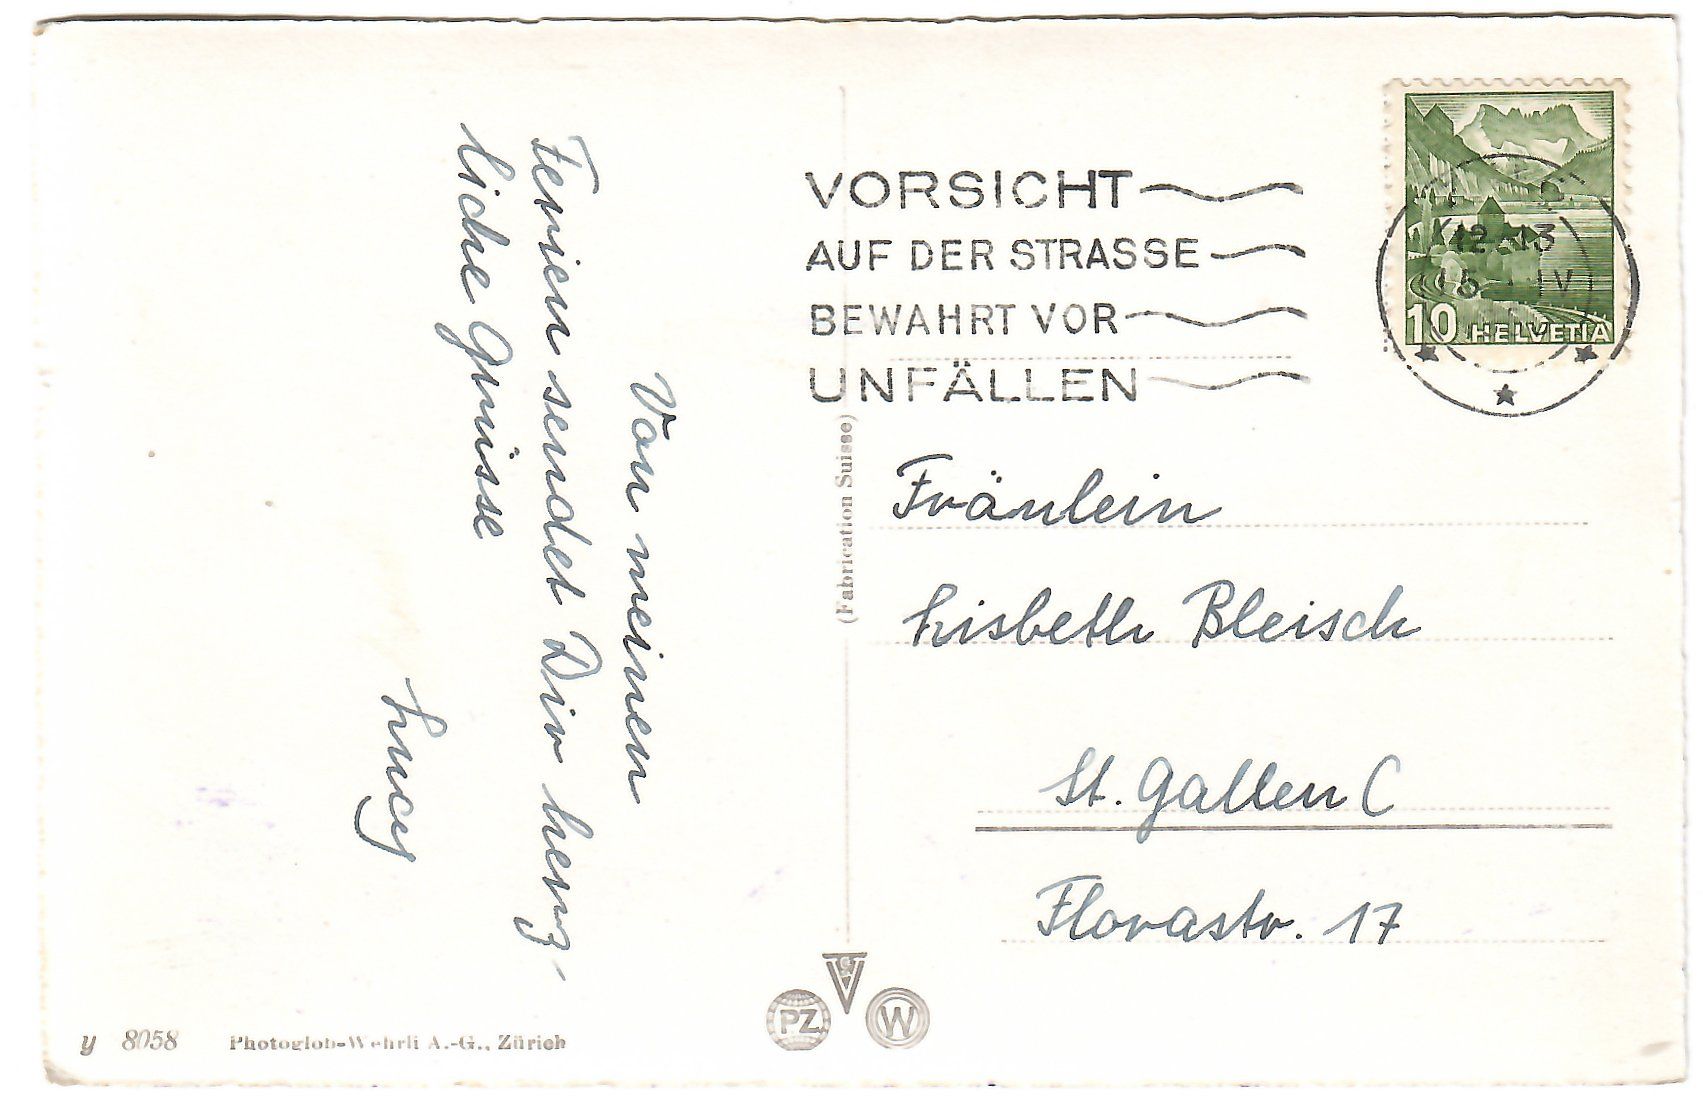 Von meinen
Ferien sendet Dir herz-
liche Grüsse
Lucy
VORSICHT
AUF DER STRASSE
BEWAHRT VOR
UNFÄLLEN
12-13
5. IV
10 HELVETIA
(Fabrication Suisse)
Fräulein
Lisbeth Bleisch
St. Gallen C
Florastr. 17
y 8058 Photoglob-Wehrli A.-G., Zürich
PZ
G
V
W